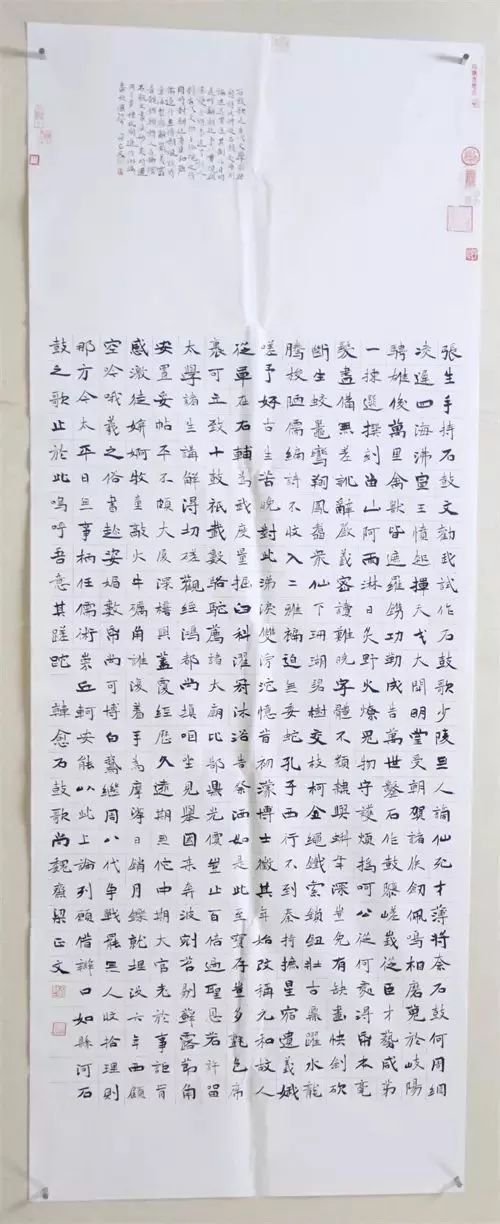 張生手持石鼓文勸我試作石鼓歌少陵無人謫仙死才薄將奈石鼓何周綱
凌遲四海沸宣王憤起揮天戈大開明堂受朝賀諸侯劍佩鳴相磨蒐於岐陽
騁雄俊萬里禽獸皆遮羅鐫功勒成告萬世鑿石作鼓隳嵯峨從臣才藝咸第
一揀選撰刻留山阿雨淋日炙野火燎鬼物守護煩撝呵公從何處得紙本毫
髮盡備無差訛辭嚴義密讀難曉字體不類隸與蝌年深豈免有缺畫快劍斫
斷生蛟鼉鸞翔鳳翥眾仙下珊瑚碧樹交枝柯金繩鐵索鎖鈕壯古鼎躍水龍
騰梭陋儒編詩不收入二雅褊迫無委蛇孔子西行不到秦掎摭星宿遺羲娥
嗟予好古生苦晚對此涕淚雙滂沱憶昔初蒙博士徵其年始改稱元和故人
從軍在右輔為我度量掘臼科濯冠沐浴告祭酒如是此至寶存豈多氈包席
裹可立致十鼓祇載數駱駝薦諸太廟比郜鼎光價豈止百倍過聖恩若許留
太學諸生講解得切磋觀經鴻都尚填咽坐見舉國來奔波剜苔剔蘚露節角
安置妥帖平不頗大廈深檐與蓋覆經歷久遠期無佗中朝大官老於事詎肯
感激徒媕婀牧童敲火牛礪角誰復著手為摩挲日銷月鑠就埋沒六年西顧
空吟哦羲之俗書趁姿媚數紙尚可博白鵝繼周八代爭戰罷無人收拾理則
那方今太平日無事柄任儒術崇丘軻安能以此上論列願借辯口如懸河石
鼓之歌止於此嗚呼吾意其蹉跎 韓愈石鼓歌尚魏齋梁正文